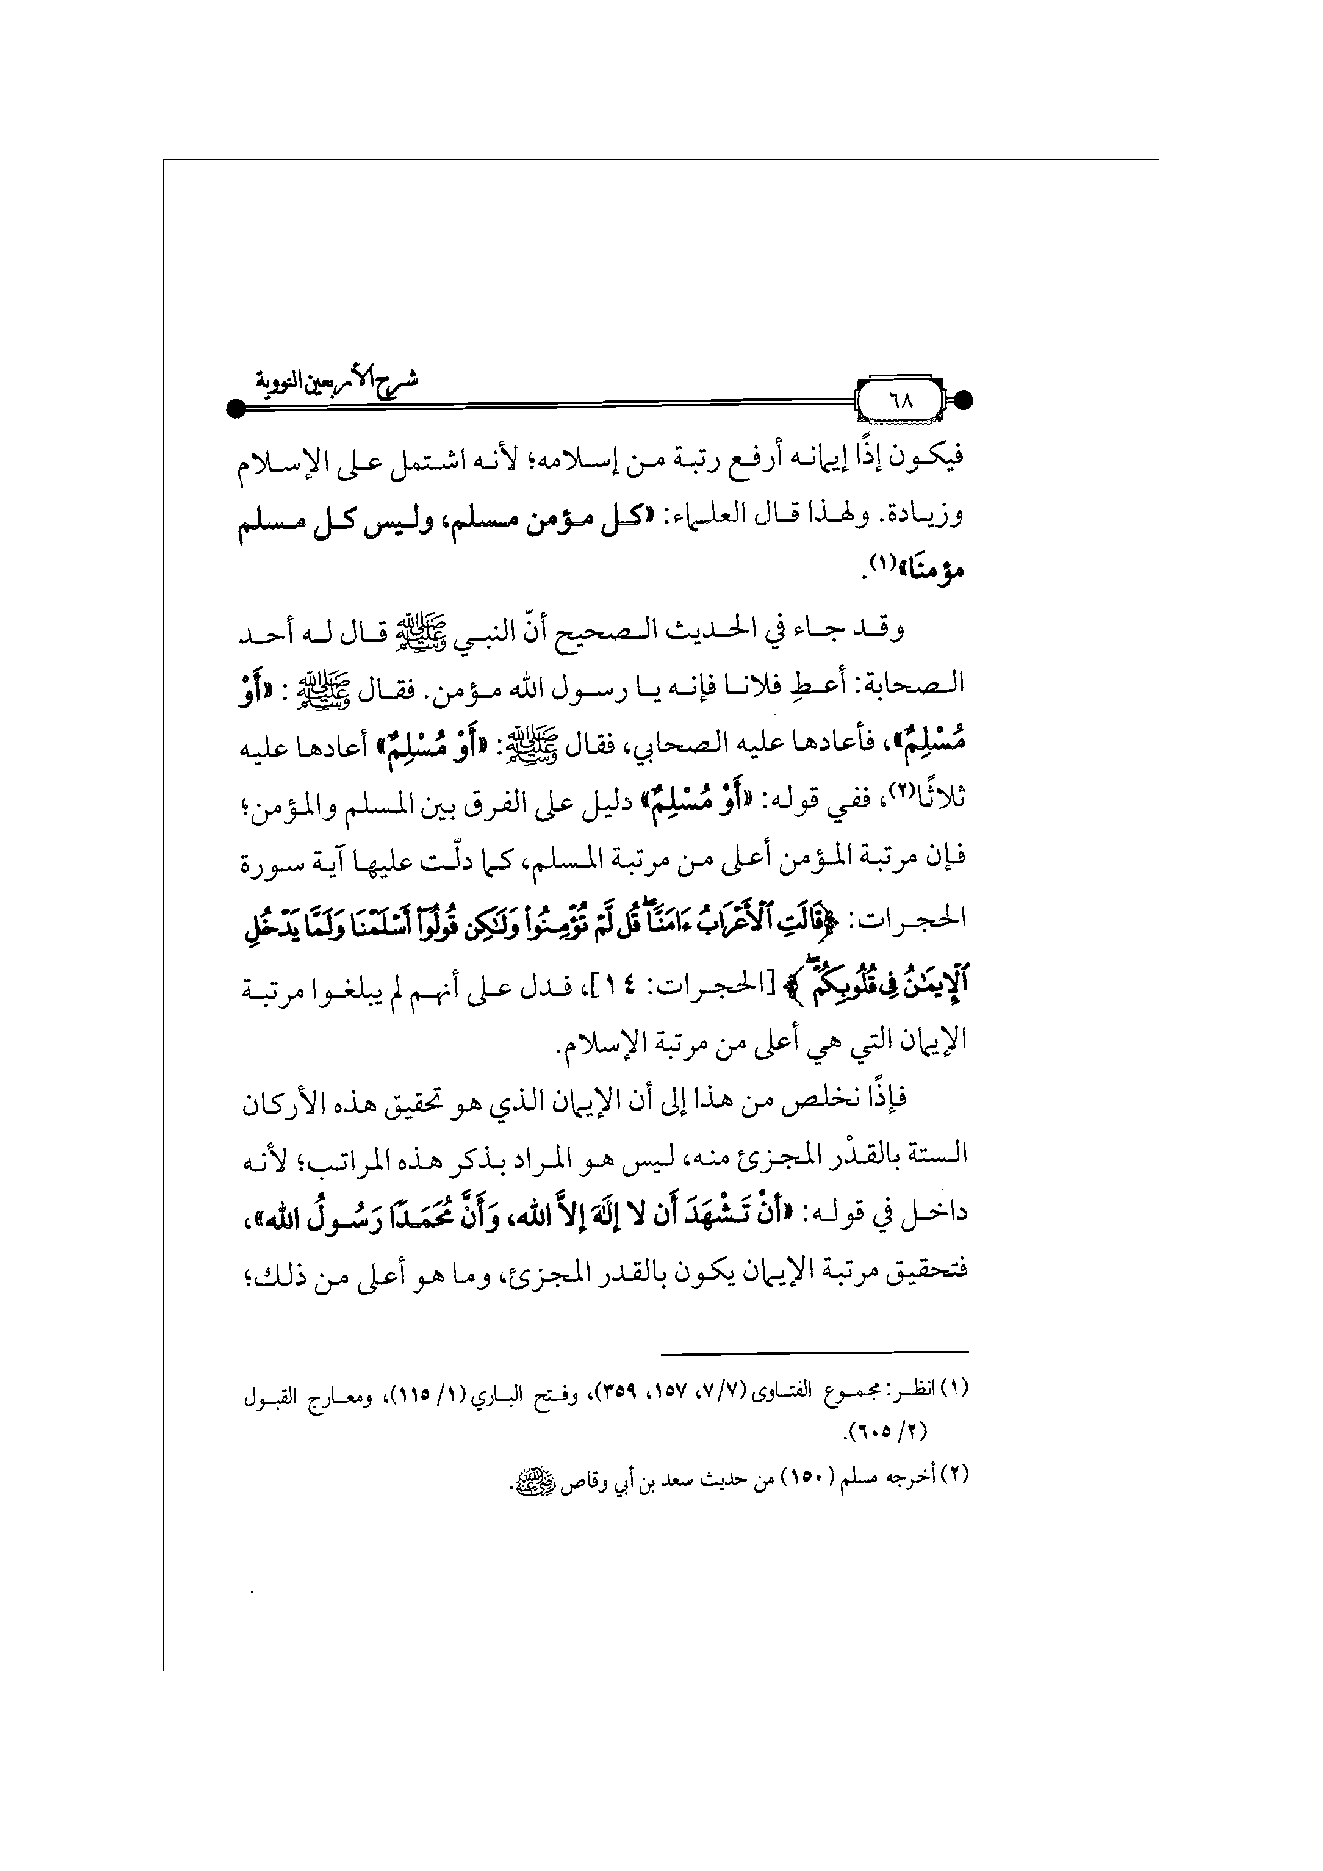 شرح الأربعين النووية
٦٨
فيكون إذًا إيمانه أرفع رتبة من إسلامه؛ لأنه اشتمل على الإسلام
وزيادة. ولهذا قال العلماء: «كل مؤمن مسلم، وليس كل مسلم
مؤمنًا»(١).
وقد جاء في الحديث الصحيح أنّ النبي ﷺ قال له أحد
الصحابة: أعطِ فلانا فإنه يا رسول الله مؤمن. فقال ﷺ: «أَوْ
مُسْلِمٌ»، فأعادها عليه الصحابي، فقال ﷺ: «أَوْ مُسْلِمٌ» أعادها عليه
ثلاثًا(٢)، ففي قوله: «أَوْ مُسْلِمٌ» دليل على الفرق بين المسلم والمؤمن؛
فإن مرتبة المؤمن أعلى من مرتبة المسلم، كما دلّت عليها آية سورة
الحجرات: ﴿قَالَتِ ٱلْأَعْرَابُ ءَامَنَّا ۖ قُل لَّمْ تُؤْمِنُوا۟ وَلَـٰكِن قُولُوٓا۟ أَسْلَمْنَا وَلَمَّا يَدْخُلِ
ٱلْإِيمَـٰنُ فِى قُلُوبِكُمْ ۖ﴾ [الحجرات: ١٤]، فدل على أنهم لم يبلغوا مرتبة
الإيمان التي هي أعلى من مرتبة الإسلام.
فإذًا نخلص من هذا إلى أن الإيمان الذي هو تحقيق هذه الأركان
الستة بالقدْر المجزئ منه، ليس هو المراد بذكر هذه المراتب؛ لأنه
داخل في قوله: «أنْ تَشْهَدَ أَن لا إِلَهَ إلاَّ الله، وَأَنَّ مُحَمَدًا رَسُولُ الله»،
فتحقيق مرتبة الإيمان يكون بالقدر المجزئ، وما هو أعلى من ذلك؛
(١) انظر: مجموع الفتاوى (٧/٧، ١٥٧، ٣٥٩)، وفتح الباري (١/ ١١٥)، ومعارج القبول
(٢/ ٦٠٥).
(٢) أخرجه مسلم (١٥٠) من حديث سعد بن أبي وقاص ﵁.